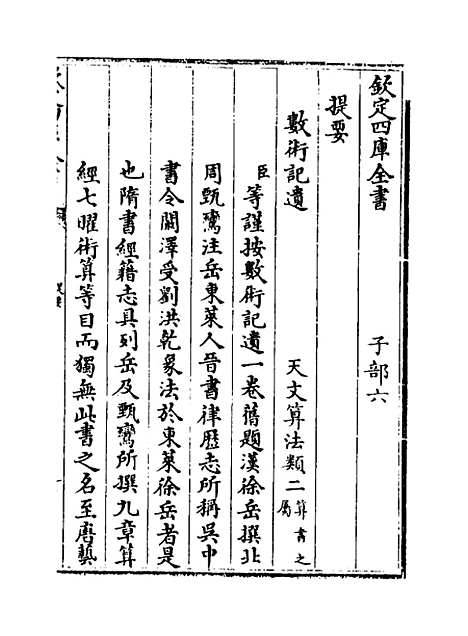 欽定四庫全書　子部六
提要
數術記遺　天文算法類二算書之屬
臣等謹按數術記遺一卷舊題漢徐岳撰北
周甄鸞注岳東萊人晉書律歷志所稱吳中
書令闞澤受劉洪乾象法於東萊徐岳者是
也隋書經籍志具列岳及甄鸞所撰九章算
經七曜術算等目而獨無此書之名至唐藝